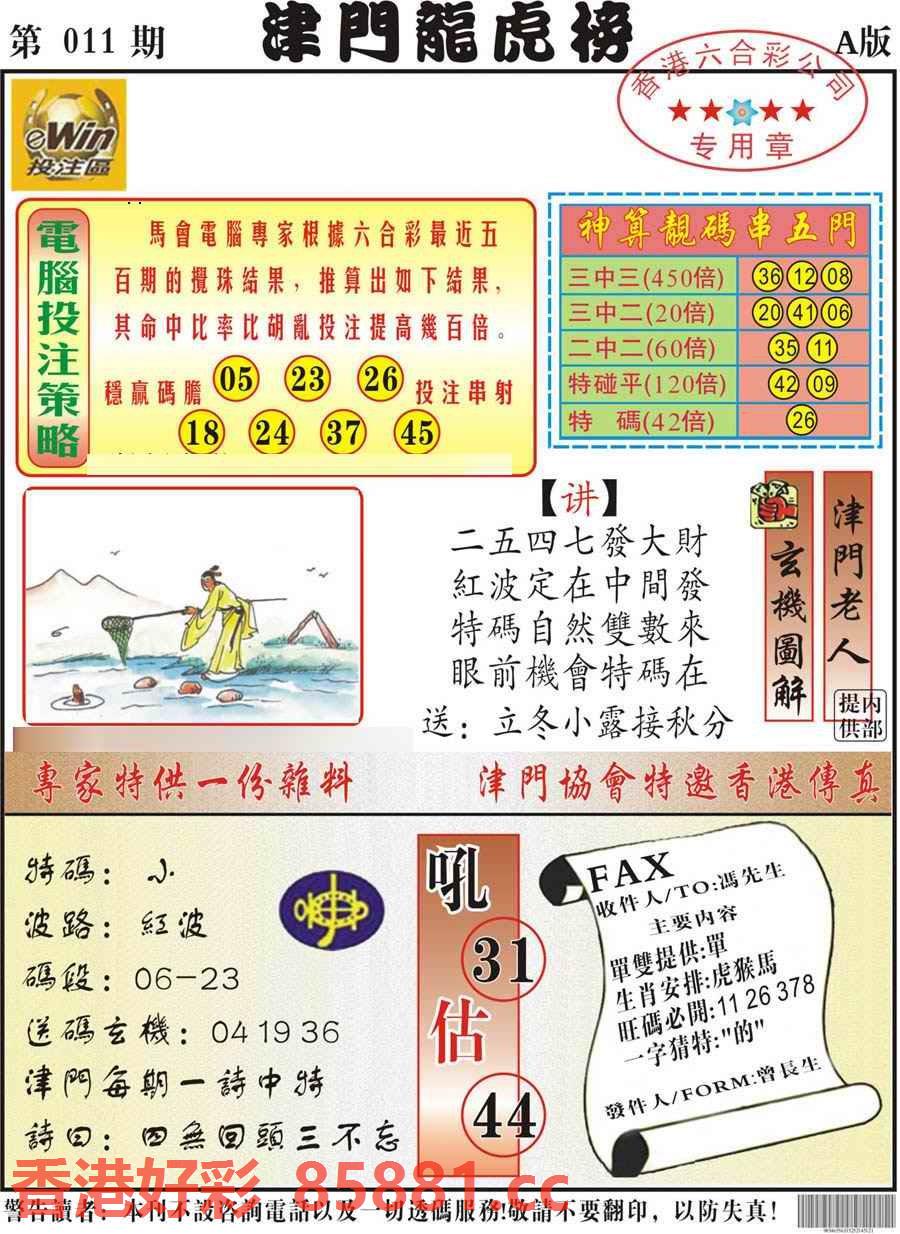 第 011 期
津門龍虎榜
A版
香港六合彩公司
专用章
eWin
投注區
電腦投注策略
馬會電腦專家根據六合彩最近五
百期的攪珠结果，推算出如下结果，
其命中比率比胡亂投注提高幾百倍。
穩贏碼膽 05 23 26 投注串射
18 24 37 45
神算靚碼串五門
三中三(450倍) 36 12 08
三中二(20倍) 20 41 06
二中二(60倍) 35 11
特碰平(120倍) 42 09
特 碼(42倍) 26
【讲】
二五四七發大財
紅波定在中間發
特碼自然雙數來
眼前機會特碼在
送：立冬小露接秋分
玄機圖解
津門老人
内部提供
專家特供一份雜料
津門協會特邀香港傳真
特碼：小
波路：紅波
碼段：06-23
送碼玄機：04 19 36
津門每期一詩中特
詩曰：四無回頭三不忘
吼
31
估
44
FAX
收件人/TO:馮先生
主要内容
單雙提供:單
生肖安排:虎猴馬
旺碼必開:11 26 378
一字猜特:"的"
發件人/FORM:曾長生
香港好彩 85881.cc
警告讀者：本刊不設咨詢電話以及一切透碼服務!敬請不要翻印，以防失真!